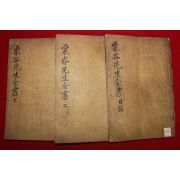 栗谷先生全書 目録
栗谷先生全書 二
栗谷先生全書